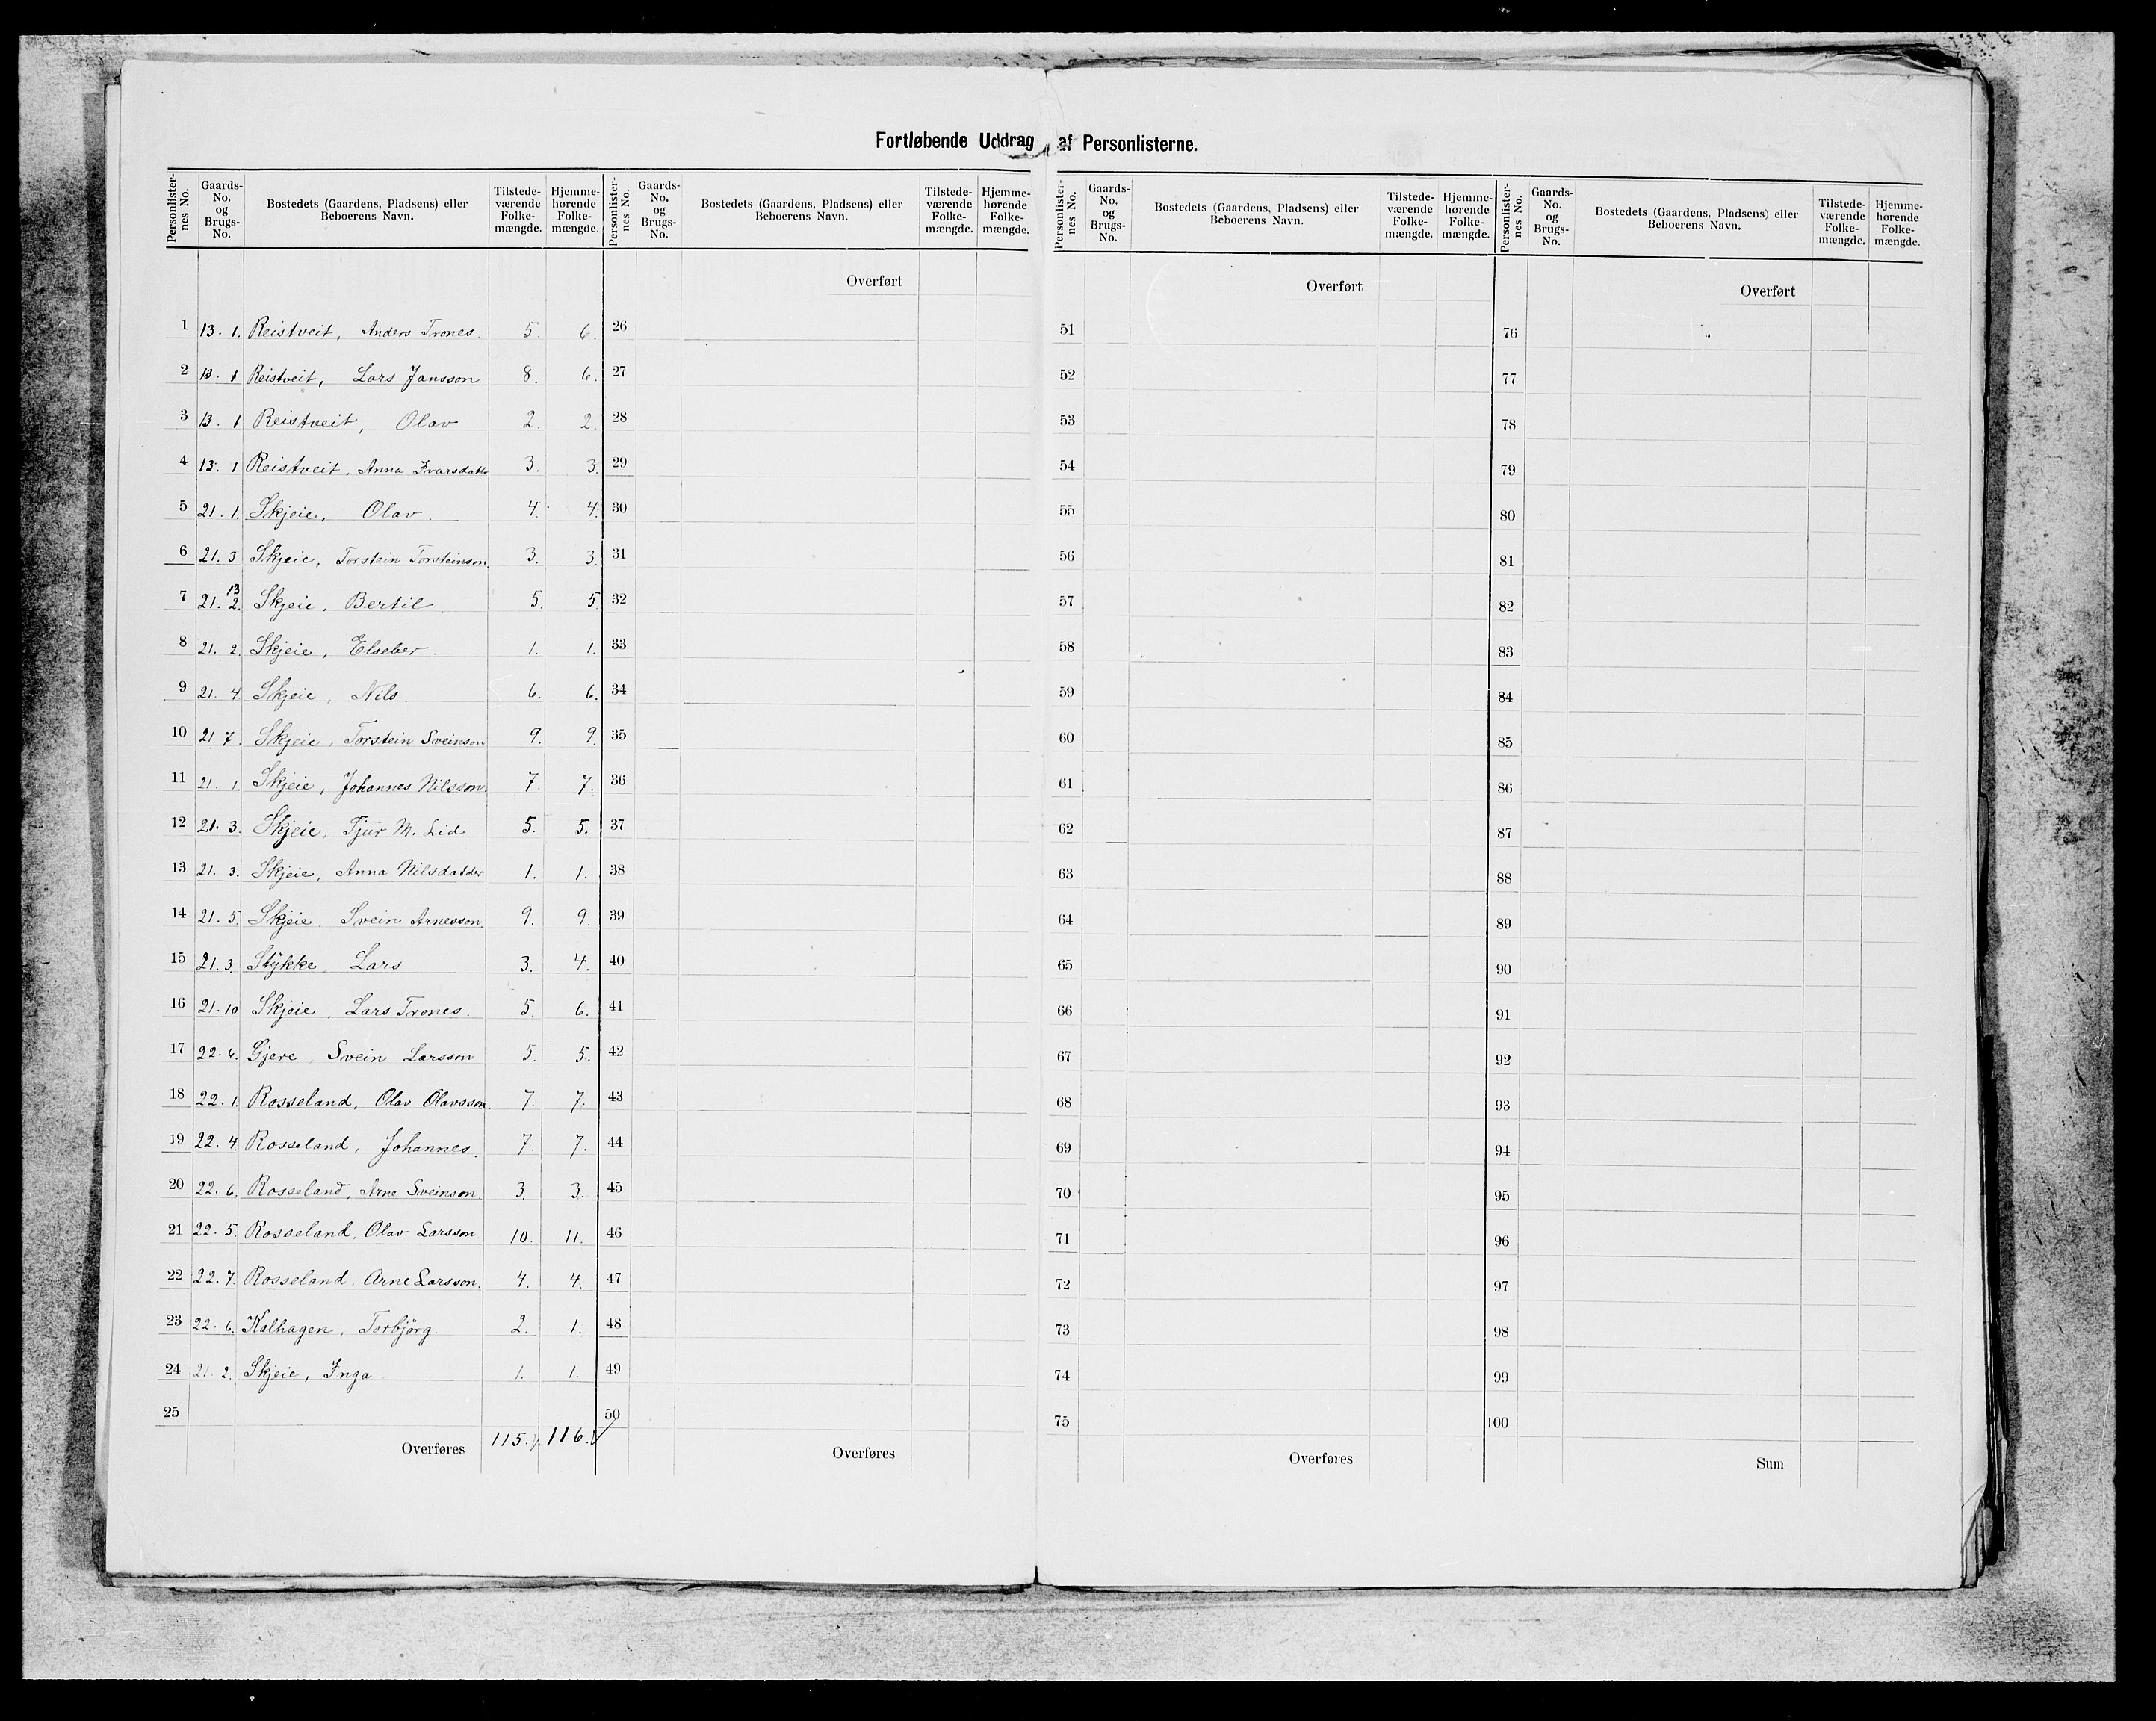 Fortløbende Uddrag af Personlisterne.
Personlister-nes No. Gaards-No. og Brugs-No. Bostedets (Gaardens, Pladsens) eller Beboerens Navn. Tilstede-værende Folke-mængde. Hjemme-hørende Folke-mængde.
1 13. 1. Reistveit, Anders Trones. 5. 6.
2 13. 1 Reistveit, Lars Jansson 8. 6.
3 13. 1 Reistveit, Olav 2. 2.
4 13. 1 Reistveit, Anna Ivarsdatt. 3. 3.
5 21. 1. Skjeie, Olav. 4. 4.
6 21. 3 Skjeie, Torstein Torsteinson. 3. 3.
7 21. 13 2. Skjeie, Bertil 5. 5
8 21. 2. Skjeie, Elseber. 1. 1.
9 21. 4 Skjeie, Nils. 6. 6.
10 21. 7. Skjeie, Torstein Sveinson 9. 9.
11 21. 1. Skjeie, Johannes Nilsson. 7. 7.
12 21. 3. Skjeie, Tjur M. Lid 5. 5.
13 21. 3. Skjeie, Anna Nilsdatder. 1. 1.
14 21. 5. Skjeie. Svein Arnesson. 9. 9.
15 21. 3. Stykke, Lars 3. 4.
16 21. 10 Skjeie, Lars Trones. 5. 6.
17 22. 6. Gjere, Svein Larsson 5. 5.
18 22. 1. Rosseland, Olav Olavsson. 7. 7.
19 22. 4. Rosseland, Johannes. 7. 7.
20 22. 6. Rosseland, Arne Sveinson. 3. 3.
21 22. 5. Rosseland, Olav Larsson. 10. 11.
22 22. 7. Rosseland, Arne Larsson. 4. 4.
23 22. 6. Kalhagen, Torbjörg. 2. 1.
24 21. 2. Skjeie, Inga 1. 1.
25
Overføres 115. 116.
Personlister-nes No. Gaards-No. og Brugs-No. Bostedets (Gaardens, Pladsens) eller Beboerens Navn. Tilstede-værende Folke-mængde. Hjemme-hørende Folke-mængde.
Overført
26
27
28
29
30
31
32
33
34
35
36
37
38
39
40
41
42
43
44
45
46
47
48
49
50
Overføres
Personlister-nes No. Gaards-No. og Brugs-No. Bostedets (Gaardens, Pladsens) eller Beboerens Navn. Tilstede-værende Folke-mængde. Hjemme-hørende Folke-mængde.
Overført
51
52
53
54
55
56
57
58
59
60
61
62
63
64
65
66
67
68
69
70
71
72
73
74
75
Overføres
Personlister-nes No. Gaards-No. og Brugs-No. Bostedets (Gaardens, Pladsens) eller Beboerens Navn. Tilstede-værende Folke-mængde. Hjemme-hørende Folke-mængde.
Overført
76
77
78
79
80
81
82
83
84
85
86
87
88
89
90
91
92
93
94
95
96
97
98
99
100
Sum